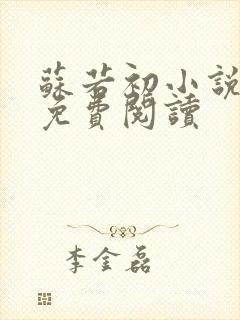 蘇若初小說
免費閱讀
李金磊